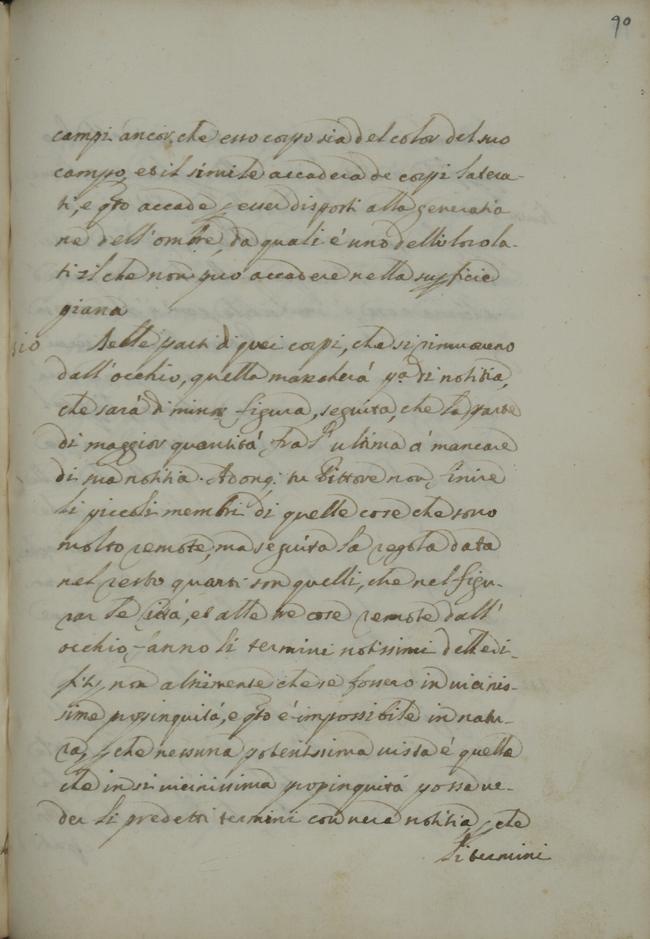 90
campi ancor, che esso corpo sia del color del suo
campo, et il simile accaderà de corpi latera-
ti, e qto accade p esser disposti alla generatio
ne dell'ombre, da quali è uno delli loro la-
ti il che non può accadere nella supficie
piana
510 Delle parti di quei corpi, che si rimuoveno
dall'occhio, quella mancherà pa di notitia,
che sarà di minor figura, seguita, che la parte
di maggior quantità fia l'ultima à mancare
di sua notitia. Adonq. tu Pittore non finire
li piccoli membri di quelle cose che sono
molto remote, ma seguita la regola data
nel resto quanti son quelli, che nel figu-
rar le città, et altre cose remote dall'
occhio, fanno li termini notissimi dell'edi-
fitij, non altrimente che se fossero in vicinis-
sime propinquità, e qto è impossibile in natu-
ra, p che nessuna potentissima vista è quella
che in si vicinissima propinquità possa ve-
der li predetti termini con vera notitia, p che
li termini